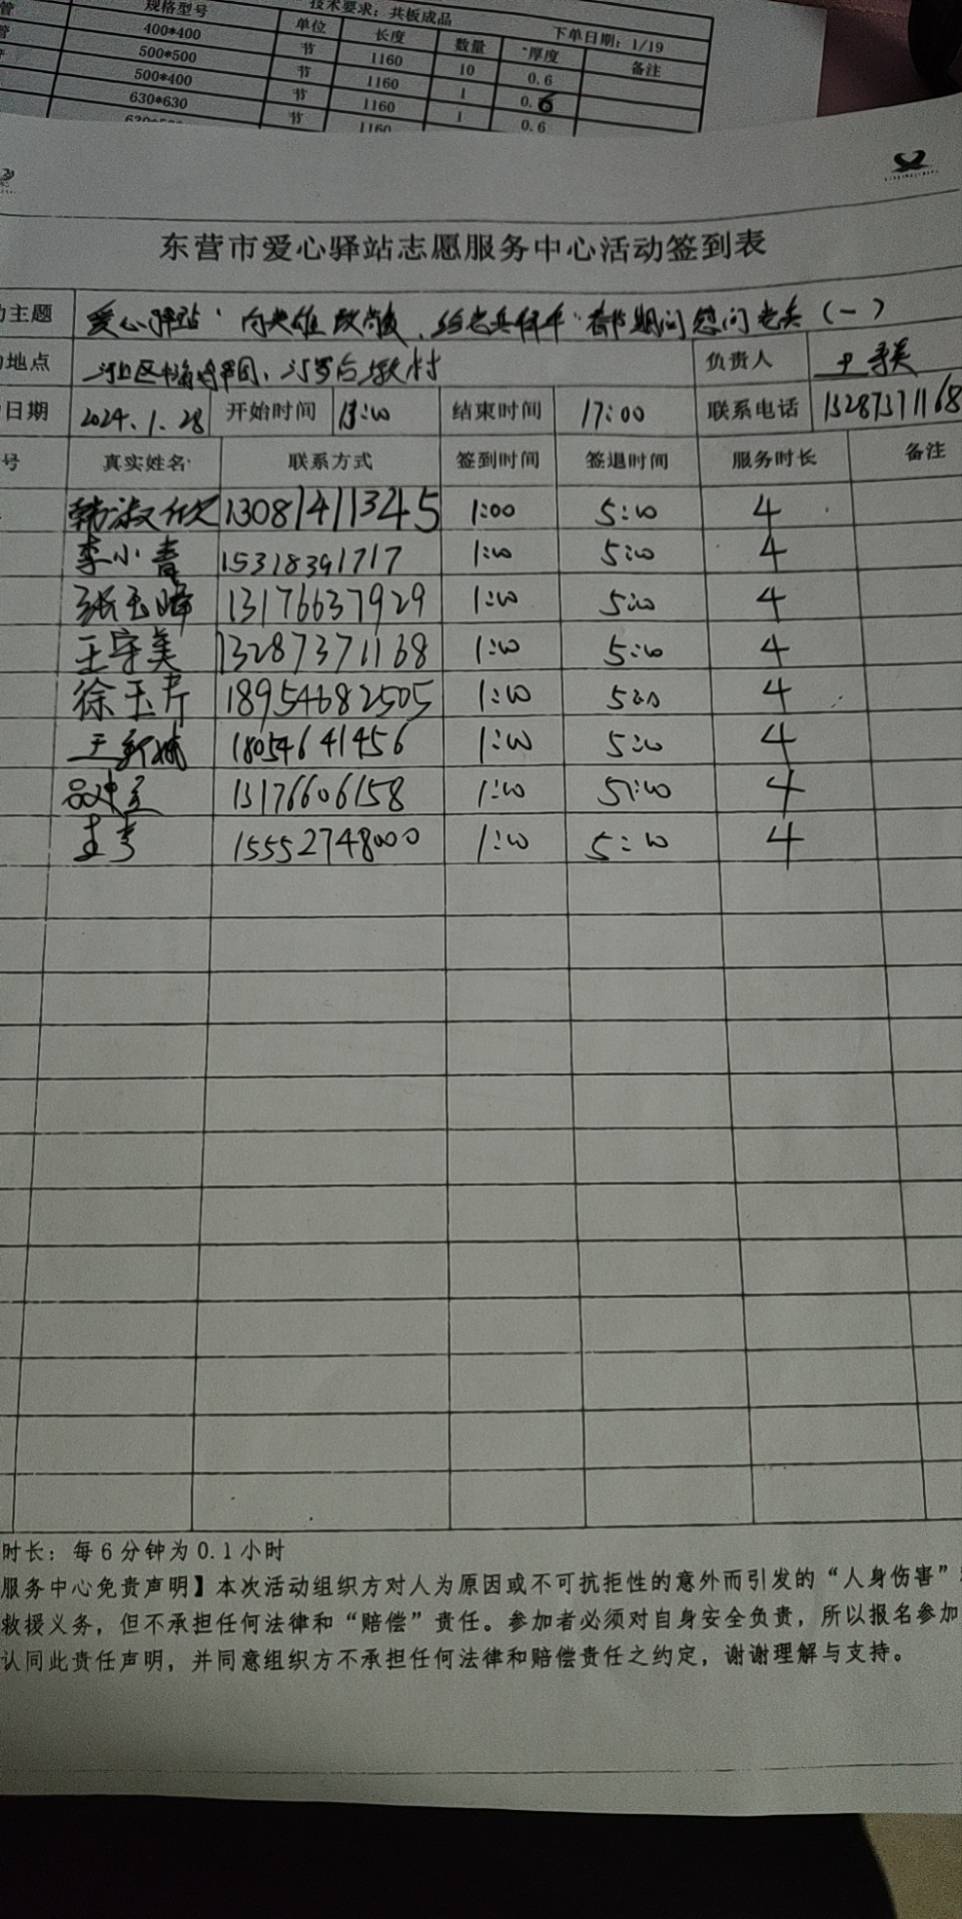 管 规格型号 技术要求：共板成品 下单日期：1/19
管 400*400 单位 长度 数量 厚度 备注
500*500 节 1160 10 0.6
500*400 节 1160 1 0.6
630*630 节 1160 1 0.6
节 1160
东营市爱心驿站志愿服务中心活动签到表
主题 爱心驿站"向英雄致敬，给老兵拜年"春节期间慰问老兵（一）
地点 负责人 王守美
日期 2024.1.28 开始时间 13:00 结束时间 17:00 联系电话 13287371168
号 真实姓名 联系方式 签到时间 签退时间 服务时长 备注
韩淑 13081411345 1:00 5:00 4
李小青 15318391717 1:00 5:00 4
张玉峰 13176637929 1:00 5:00 4
王守美 13287371168 1:00 5:00 4
徐玉芹 18954682505 1:00 5:00 4
王新城 18054641456 1:00 5:00 4
13176606158 1:00 5:00 4
15552748000 1:00 5:00 4
时长：每6分钟为0.1小时
服务中心免责声明】本次活动组织方对人为原因或不可抗拒性的意外而引发的“人身伤害”
救援义务，但不承担任何法律和“赔偿”责任。参加者必须对自身安全负责，所以报名参加
认同此责任声明，并同意组织方不承担任何法律和赔偿责任之约定，谢谢理解与支持。